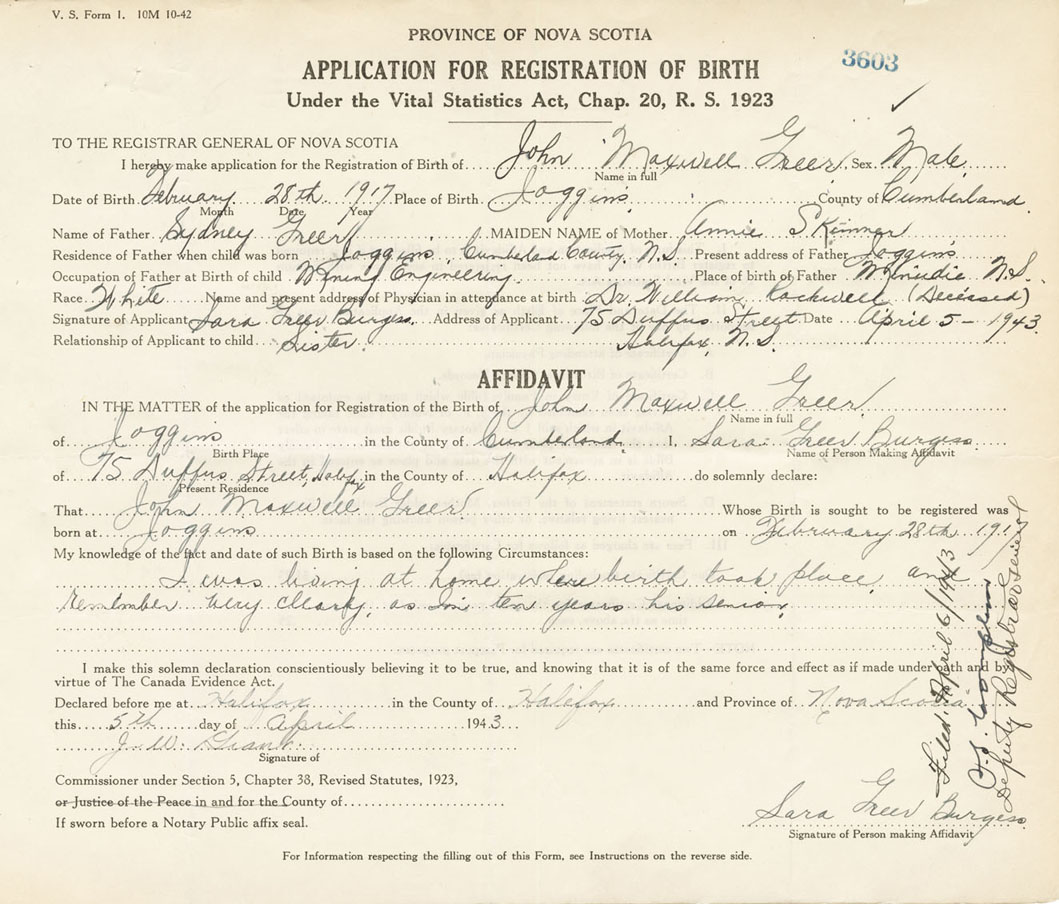 V. S. Form 1. 10M 10-42
PROVINCE OF NOVA SCOTIA
3603
APPLICATION FOR REGISTRATION OF BIRTH
Under the Vital Statistics Act, Chap. 20, R. S. 1923
TO THE REGISTRAR GENERAL OF NOVA SCOTIA
I hereby make application for the Registration of Birth of John Maxwell Greer Sex Male
Name in full
Date of Birth February 28th 1917 Place of Birth Joggins County of Cumberland
Month Date Year
Name of Father Sydney Greer MAIDEN NAME of Mother Annie Skinner
Residence of Father when child was born Joggins, Cumberland County, N.S. Present address of Father Joggins
Occupation of Father at Birth of child Mining Engineering Place of birth of Father Minudie N.S.
Race White Name and present address of Physician in attendance at birth Dr. William Rockwell (Deceased)
Signature of Applicant Sara Greer Burgess Address of Applicant 75 Duffus Street Date April 5 - 1943
Relationship of Applicant to child Sister. Halifax, N.S.
AFFIDAVIT
IN THE MATTER of the application for Registration of the Birth of John Maxwell Greer
Name in full
of Joggins in the County of Cumberland I, Sara Greer Burgess
Birth Place Name of Person Making Affidavit
of 75 Duffus Street, Halifax in the County of Halifax do solemnly declare:
Present Residence
That John Maxwell Greer Whose Birth is sought to be registered was
born at Joggins on February 28th 1917
My knowledge of the fact and date of such Birth is based on the following Circumstances:
I was living at home where birth took place, and
remember very clearly, as I'm ten years his senior.
I make this solemn declaration conscientiously believing it to be true, and knowing that it is of the same force and effect as if made under oath and by
virtue of The Canada Evidence Act.
Declared before me at Halifax in the County of Halifax and Province of Nova Scotia
this 5th day of April 1943
J. W.
Signature of
Commissioner under Section 5, Chapter 38, Revised Statutes, 1923,
or Justice of the Peace in and for the County of
If sworn before a Notary Public affix seal.
Sara Greer Burgess
Signature of Person making Affidavit
For Information respecting the filling out of this Form, see Instructions on the reverse side.
Filed: April 6/1943
Deputy Registrar General